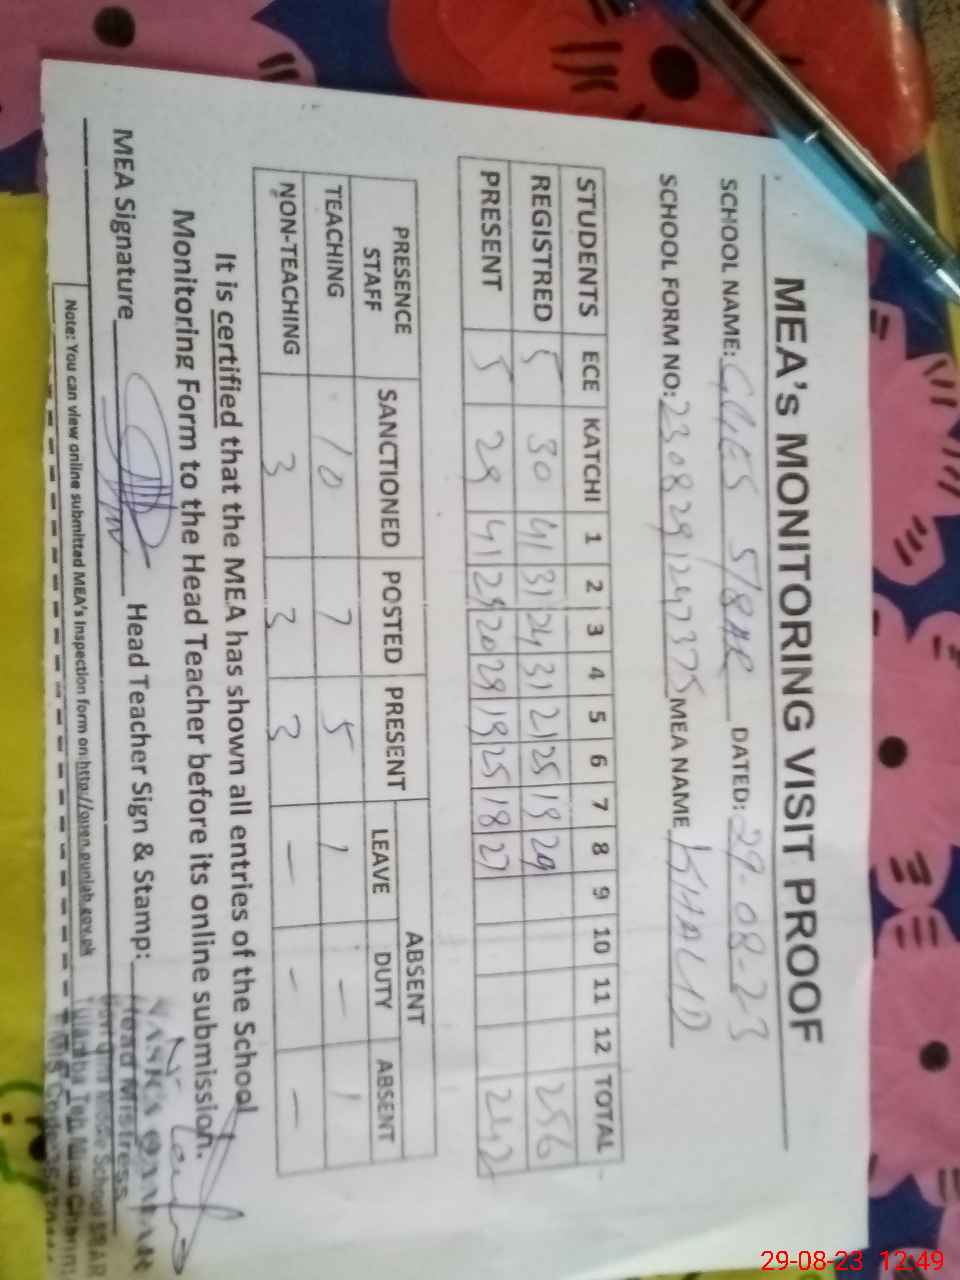 MEA's MONITORING VISIT PROOF
SCHOOL NAME: GGES 5/8AR DATED: 29-08-23
SCHOOL FORM NO: 230829124737S MEA NAME KHALID
STUDENTS ECE KATCHI 1 2 3 4 5 6 7 8 9 10 11 12 TOTAL
REGISTRED 5 30 41 31 24 31 21 25 19 29 256
PRESENT 5 29 41 29 20 29 19 25 18 27 242
PRESENCE STAFF SANCTIONED POSTED PRESENT ABSENT
LEAVE DUTY ABSENT
TEACHING 10 7 5 1 — 1
NON-TEACHING 3 3 3 — — —
It is certified that the MEA has shown all entries of the School
Monitoring Form to the Head Teacher before its online submission.
MEA Signature Head Teacher Sign & Stamp:
Head Mistress
Note: You can view online submitted MEA's Inspection form on:http://open.punjab.gov.pk
29-08-23 12:49